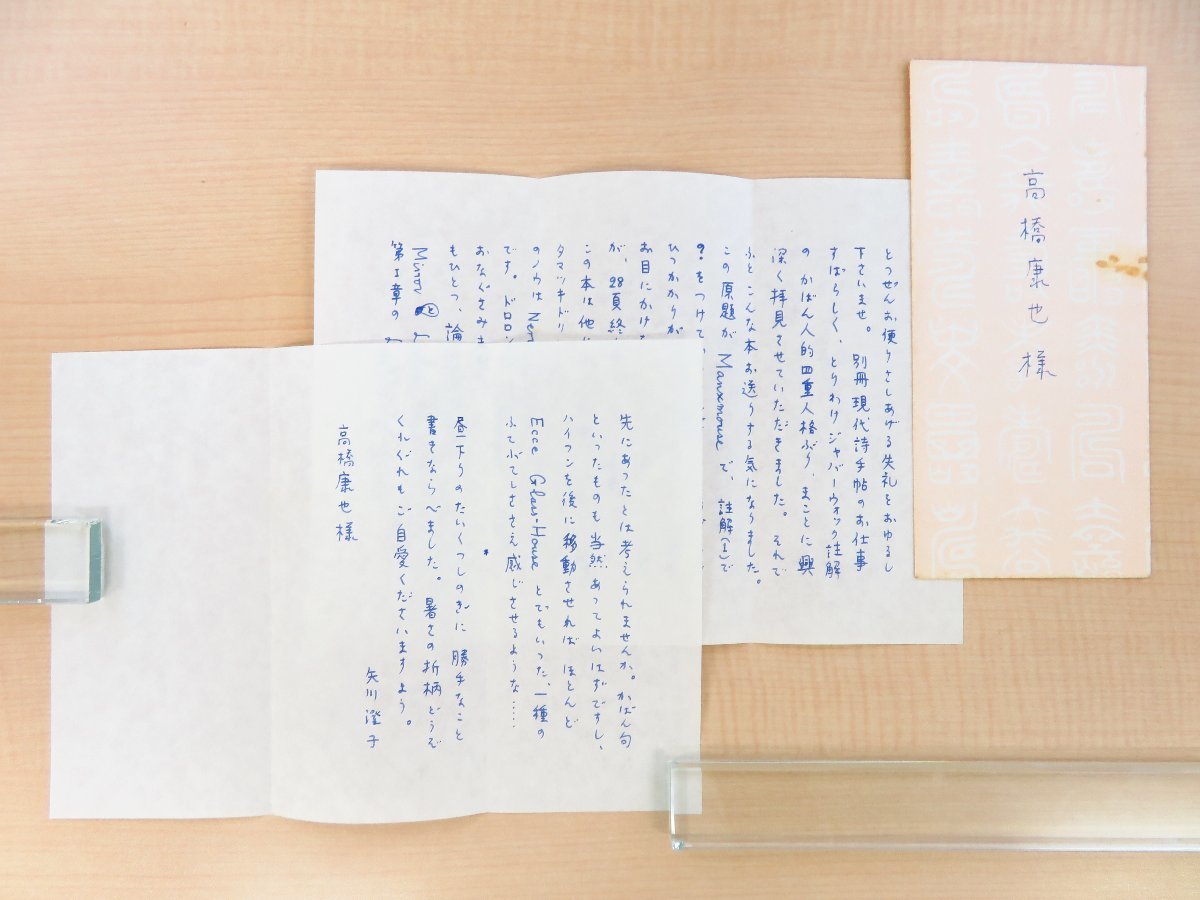 高橋康也様
とつぜんお便りさしあげる失礼をおゆるし
下さいませ。別冊現代詩手帖のお仕事
すばらしく、とりわけジャバーウォック註解
の かばん人的四重人格ぶり、まことに興
深く拝見させていただきました。それで
ふと こんな本お送りする気になりました。
この原題が Manxmouse で、註解(1)で
?をつけて
ひっかかりが
お目にかけ
が、28頁終
この本は他に
タマツキドリ
のノウは
です。ドロロン
おなぐさみ
もひとつ、論
Mirror と
第1章の
先にあったとは考えられませんか。かばん句
といったものも当然あってよいはずですし、
ハイフンを後に移動させれば ほとんど
Ecce Glass-House とでもいった、一種の
ふてぶてしささえ感じさせるような……
*
昼下りのたいくつしのぎに 勝手なこと
書きならべました。暑さの折柄どうぞ
くれぐれもご自愛くださいますよう。
矢川澄子
高橋康也様